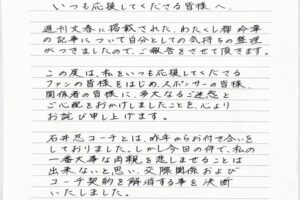 いつも応援してくださる皆様へ.
週刊文春に掲載された、わたくし都合の
の記事について自分としての気持ちの整理
がつきましたので、ご報告をさせて頂きます。
この度は、私をいつも応援してくださる
ファンの皆様をはじめ、スポンサーの皆様、
関係者の皆様に、多大なるご迷惑と
ご心配をおかけしましたことを、心より
お詫び申し上げます。
石井忍コーチとは、昨年からお付き合いを
しておりました。しかし今回の件で、私の
一番大事な両親を悲しませることは
出来ないと思い、交際関係および
コーチ契約を解消する事を決断
いたしました。